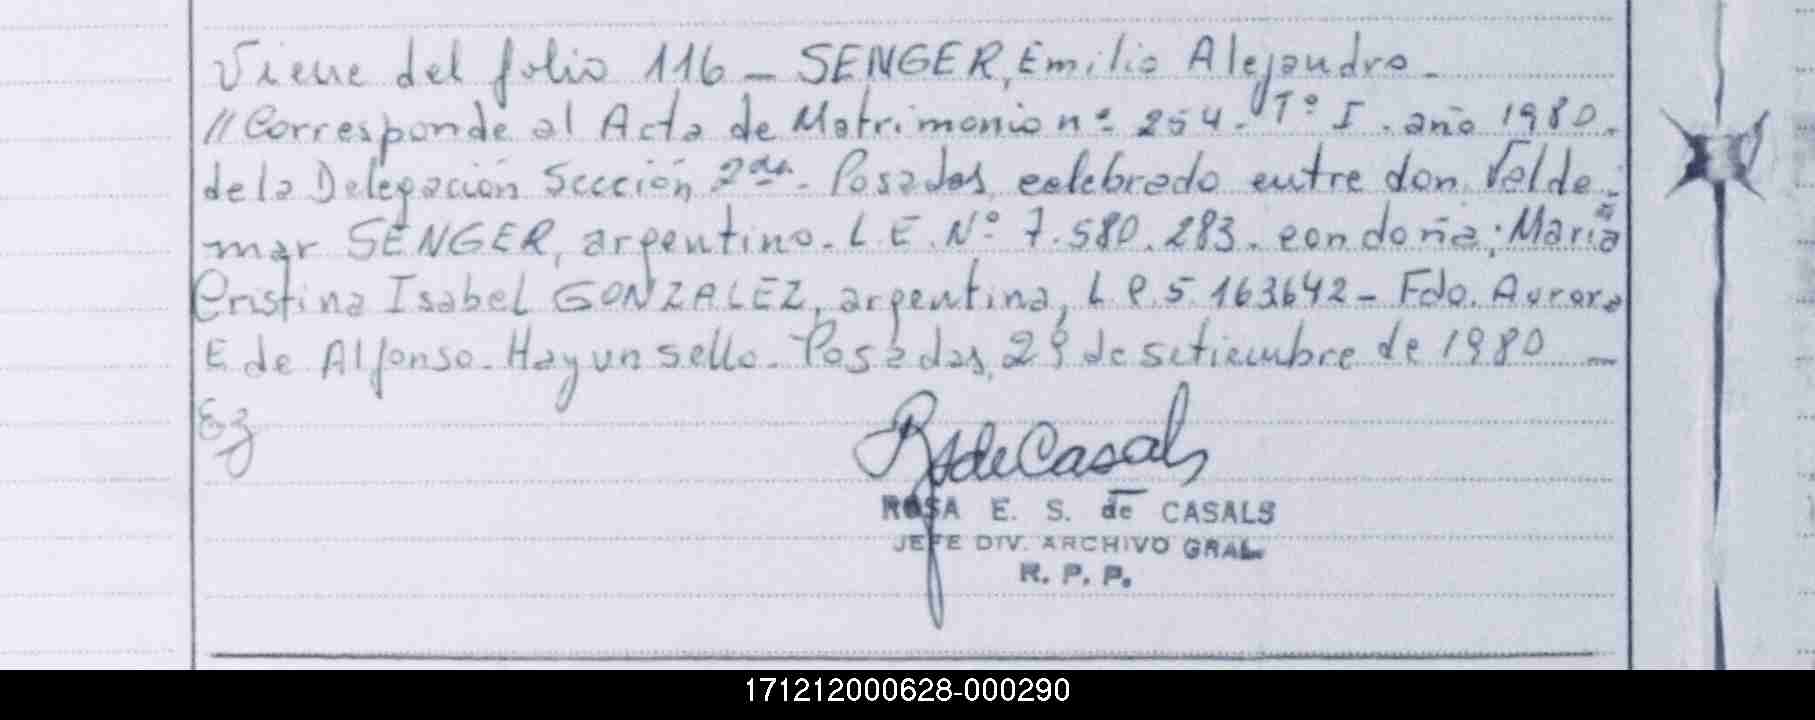 Viene del folio 116 - SENGER, Emilio Alejandro -
// Corresponde al Acta de Matrimonio nº 254 - Tº I. año 1980.
de la Delegación Sección 2da - Posadas, celebrado entre don Valde-
mar SENGER, argentino. L.E. Nº 7.580.283. con doña; María
Cristina Isabel GONZALEZ, argentina, L.C. 5.163642 - Fdo. Aurora
E de Alfonso. Hay un sello. Posadas, 29 de setiembre de 1980 -
Ez
RSdeCasals
ROSA E. S. de CASALS
JEFE DIV. ARCHIVO GRAL.
R. P. P.
171212000628-000290